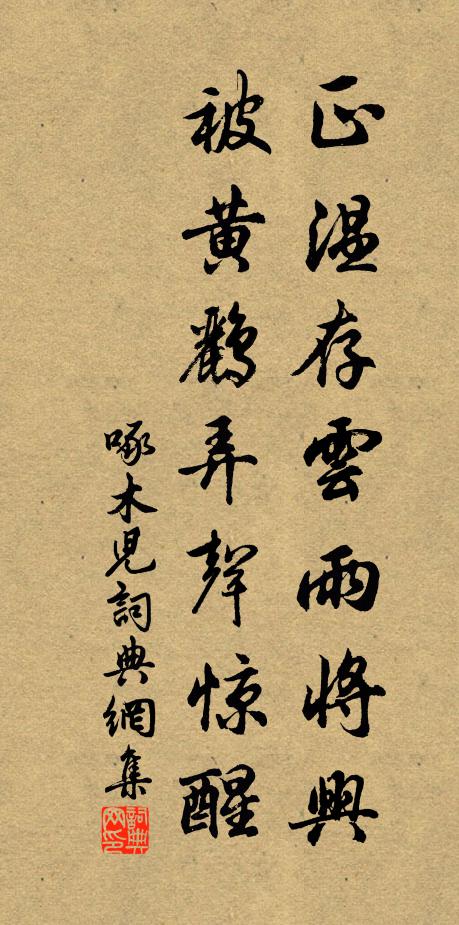 正温存雲雨將興
被黄鸝弄聲惊醒
啄木兒詞典網集
詞典网印